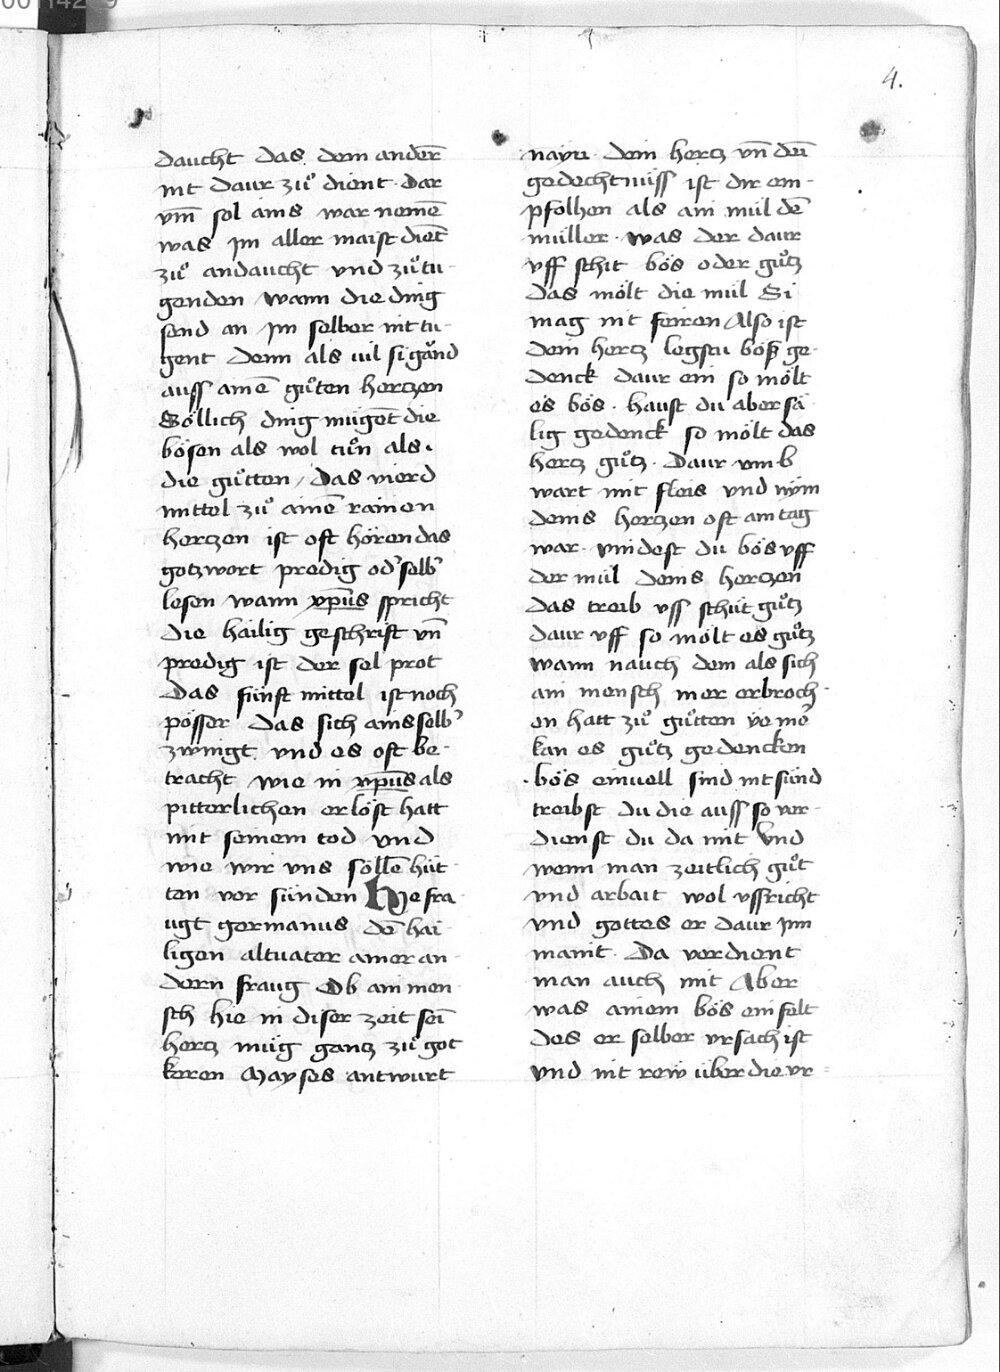 4.
daucht das dem andeꝛ̄
nit daur zuͦ dient · Dar
vm̄ sol ains war nemē
was jm aller maist diēt
zuͦ andaucht vnd zuͦ tu-
genden wann die ding
send an jm selber nit tu-
gent denn als vil si gaͮnd
auss ainē guͦten hertzen
Söllich ding mügēt die
bösen als wol tuͦn als
die guͦtten / Das vierd
mittel zuͦ ainē rainen
hertzen ist oft hören das
gotzwort predig od' selb'
lesen wann xp̄us spricht
die hailig geschrift vn̄
predig ist der sel prot
Das fünft mittel ist noch
pösser Das sich ains selb'
zwingt vnd es oft be-
tracht wie in xp̄us als
pitterlichen erlöst hatt
mit seinem tod vnd
wie wir vns söllē hüt-
ten vor sünden He fra-
ugt germanus dē hai-
ligen altuater ainer an-
dern fraug Ob ain men-
sch hie in diser zeit sei
hertz müg gantz zuͦ got
keren Mayses antwurt
nayn · dein hertz vn̄ dein
gedechtnüss ist dir em-
pfolhen als ain mül dē
müller · was der daur
vff schit bös oder guͦtz
das mölt die mül Si
mag nit feiren Also ist
dein hertz legstu böß ge-
denck daur ein so mölt
es bös · haust du aber sä-
lig gedenck so mölt das
hertz guͦtz · Daur vmb
wart mit fleis vnd nym
deins hertzen oft am tag
war · vindest du bös vff
der mül deins hertzen
das treib vss schüt guͦtz
daur vff so mölt es guͦtz
wann nauch dem als sich
ain mensch mer erbroch-
en hatt zuͦ guͦtten ye mē
kan es guͦtz gedencken
bös einuell sind nit sünd
treibst du die auss so ver-
dienst du da mit Vnd
wenn man zeitlich guͦt
vnd arbait wol vssricht
vnd gottes er daur jnn
maint · Da verdient
man auch mit Aber
was ainem bös ein felt
des er selber vrsach ist
vnd nit rew über die vr-